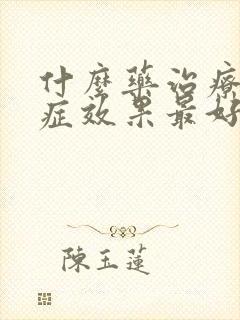 什麼藥治療
症效果最好
陳玉蓮